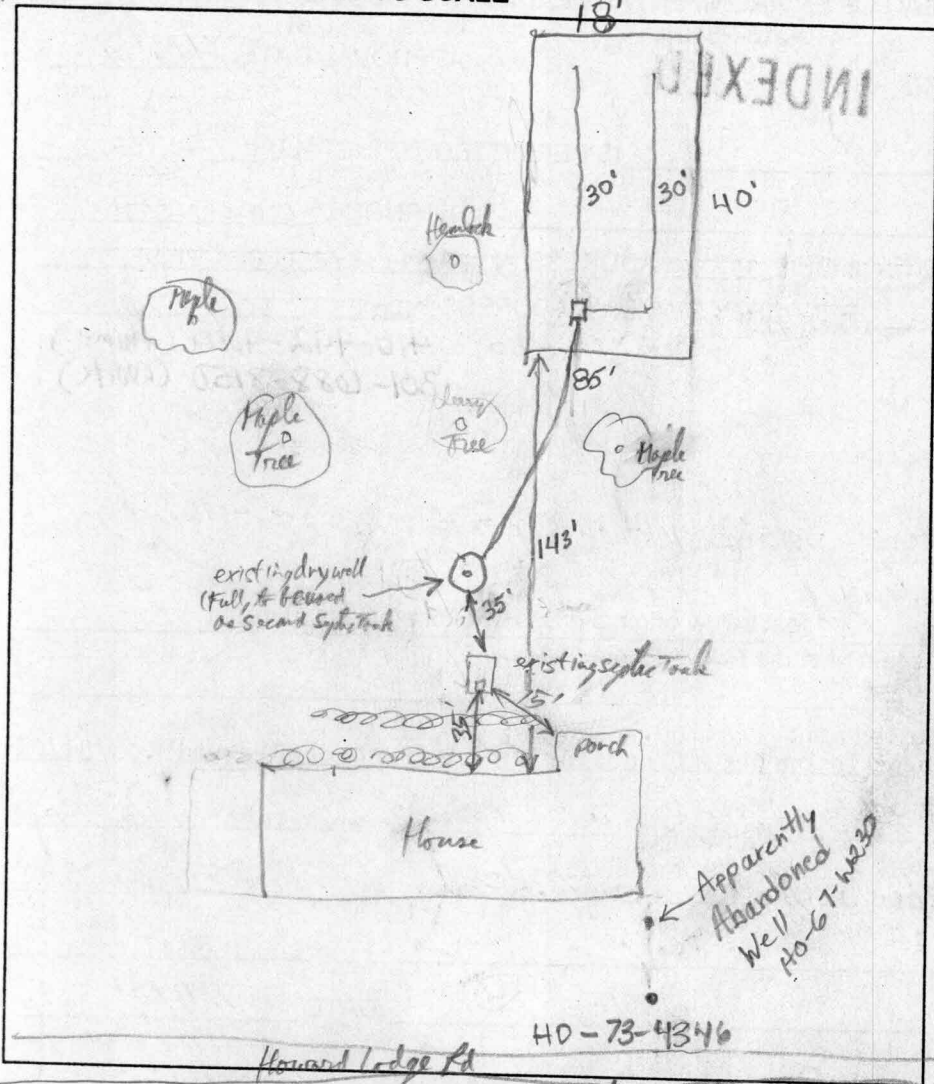 18'
INDEXED
30'
30'
40'
Hemlock
Maple
85'
Maple
Tree
Cherry
Tree
Maple
Tree
143'
existing drywell
(Full, to be used
as Second Septic Tank
35'
existing septic Tank
15'
35'
porch
House
Apparently
Abandoned
Well
HO-73-4346
Howard Lodge Rd